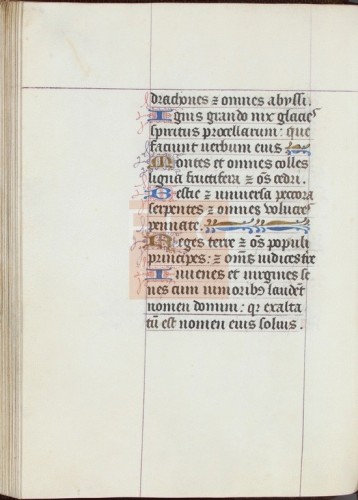 drachones ⁊ omnes abyssi.
Ignis grando nix glacies
spiritus procellarum: que
faciunt verbum eius
Montes et omnes colles
ligna fructifera ⁊ oẽs cedri.
Bestie ⁊ universa peccora
serpentes ⁊ omnes volucres
pennate.
Reges terre ⁊ oẽs populi
principes: ⁊ oẽs iudices tre
Iuvenes et virgines se
nes cum iunioribꝫ laudẽt
nomen domini: qꝛ exalta
tũ est nomen eius solius.